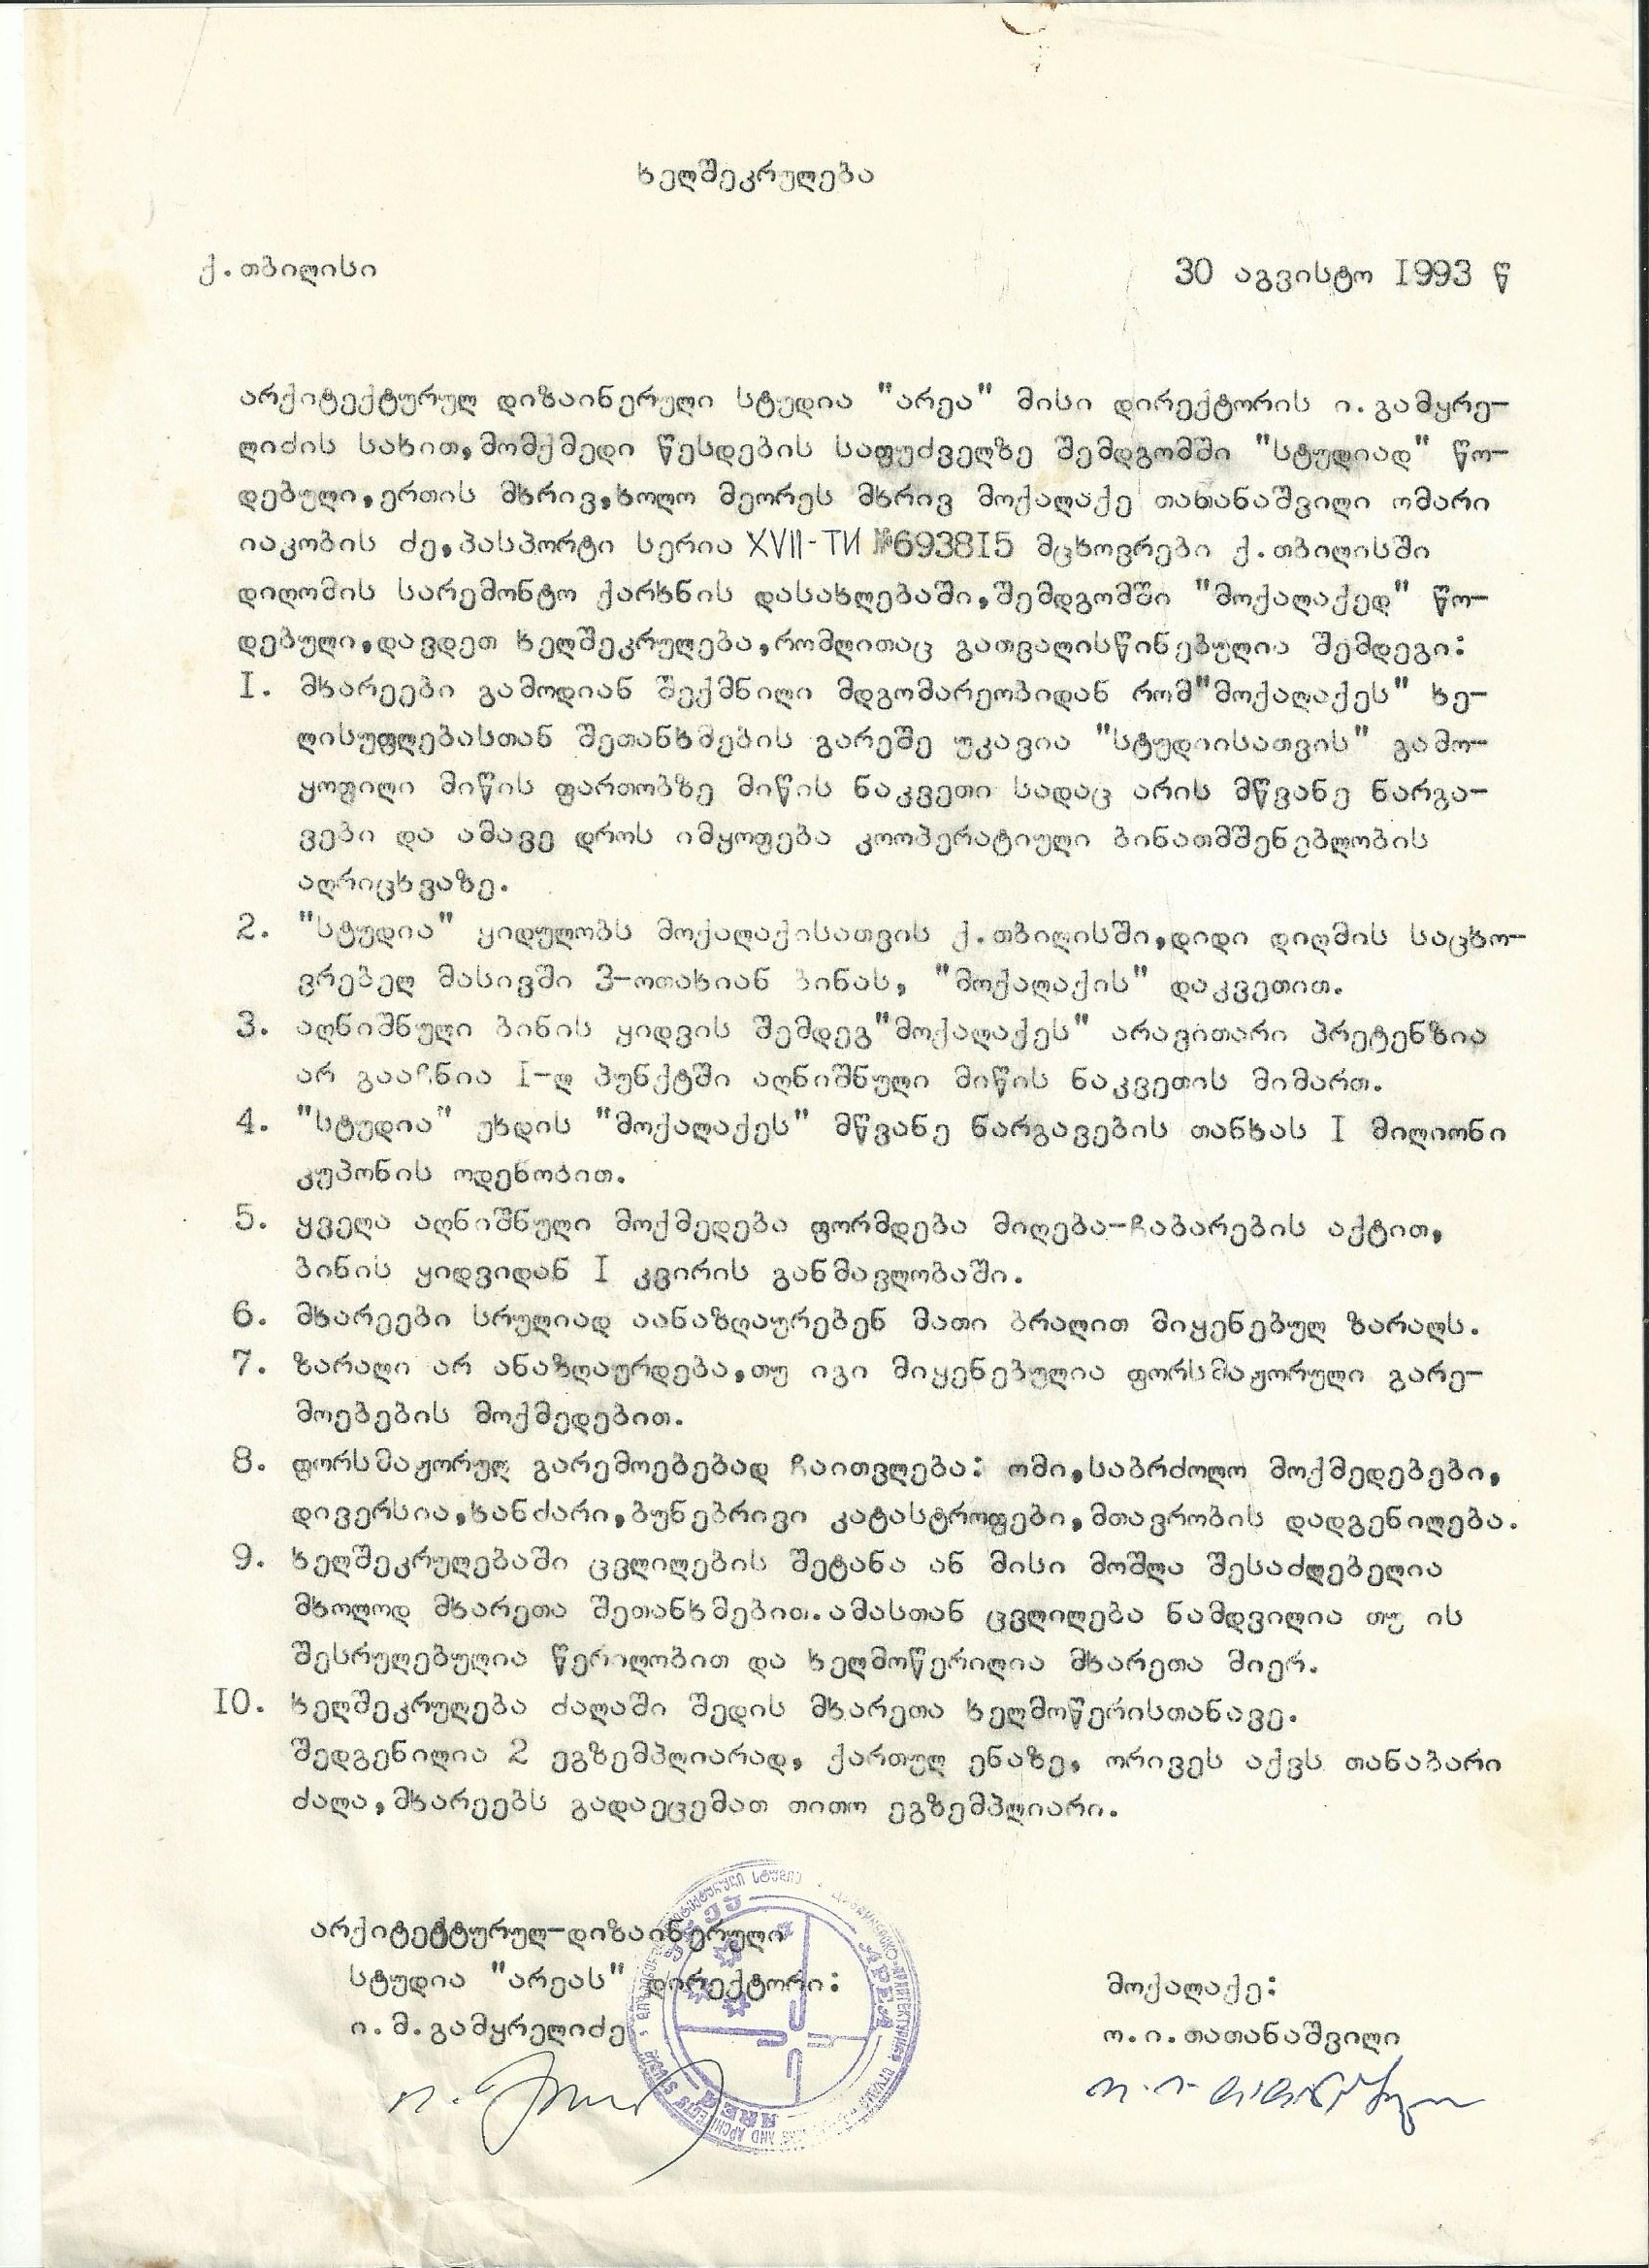 ხელშეკრულება
ქ.თბილისი
30 აგვისტო I993 წ
არქიტექტურულ დიზაინერული სტუდია "არეა" მისი დირექტორის ი.გამყრე-
ლიძის სახით,მომქმედი წესდების საფუძველზე შემდგომში "სტუდიად" წო-
დებული,ერთის მხრივ,ხოლო მეორეს მხრივ მოქალაქე თათანაშვილი ომარი
იაკობის ძე,პასპორტი სერია XVII-ТИ №6938I5 მცხოვრები ქ.თბილისში
დიღომის სარემონტო ქარხნის დასახლებაში,შემდგომში "მოქალაქედ" წო-
დებული,დავდეთ ხელშეკრულება,რომლითაც გათვალისწინებულია შემდეგი:
I. მხარეები გამოდიან შექმნილი მდგომარეობიდან რომ"მოქალაქეს" ხე-
ლისუფლებასთან შეთანხმების გარეშე უკავია "სტუდიისათვის" გამო-
ყოფილი მიწის ფართობზე მიწის ნაკვეთი სადაც არის მწვანე ნარგა-
ვები და ამავე დროს იმყოფება კოოპერატიული ბინათმშენებლობის
აღრიცხვაზე.
2. "სტუდია" ყიდულობს მოქალაქისათვის ქ.თბილისში,დიდი დიღმის საცხო-
ვრებელ მასივში 3-ოთახიან ბინას, "მოქალაქის" დაკვეთით.
3. აღნიშნული ბინის ყიდვის შემდეგ"მოქალაქეს" არავითარი პრეტენზია
არ გააჩნია I-ლ პუნქტში აღნიშნული მიწის ნაკვეთის მიმართ.
4. "სტუდია" უხდის "მოქალაქეს" მწვანე ნარგავების თანხას I მილიონი
კუპონის ოდენობით.
5. ყველა აღნიშნული მოქმედება ფორმდება მიღება-ჩაბარების აქტით,
ბინის ყიდვიდან I კვირის განმავლობაში.
6. მხარეები სრულიად აანაზღაურებენ მათი ბრალით მიყენებულ ზარალს.
7. ზარალი არ ანაზღაურდება,თუ იგი მიყენებულია ფორსმაჟორული გარე-
მოებების მოქმედებით.
8. ფორსმაჟორულ გარემოებებად ჩაითვლება: ომი,საბრძოლო მოქმედებები,
დივერსია,ხანძარი,ბუნებრივი კატასტროფები,მთავრობის დადგენილება.
9. ხელშეკრულებაში ცვლილების შეტანა ან მისი მოშლა შესაძლებელია
მხოლოდ მხარეთა შეთანხმებით.ამასთან ცვლილება ნამდვილია თუ ის
შესრულებულია წერილობით და ხელმოწერილია მხარეთა მიერ.
I0. ხელშეკრულება ძალაში შედის მხარეთა ხელმოწერისთანავე.
შედგენილია 2 ეგზემპლიარად, ქართულ ენაზე, ორივეს აქვს თანაბარი
ძალა,მხარეებს გადაეცემათ თითო ეგზემპლიარი.
არქიტექტურულ-დიზაინერული
სტუდია "არეას" დირექტორი:
ი.მ.გამყრელიძე
მოქალაქე:
ო.ი.თათანაშვილი
АРЕА
AREA